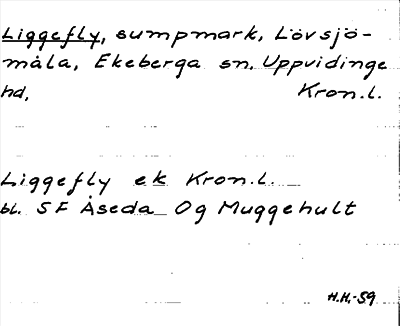 Liggefly, sumpmark, Lövsjö-
måla, Ekeberga sn, Uppvidinge
hd, Kron.l.
Liggefly ek Kron.l.
bl. SF Åseda Og Muggehult
H.H.-59